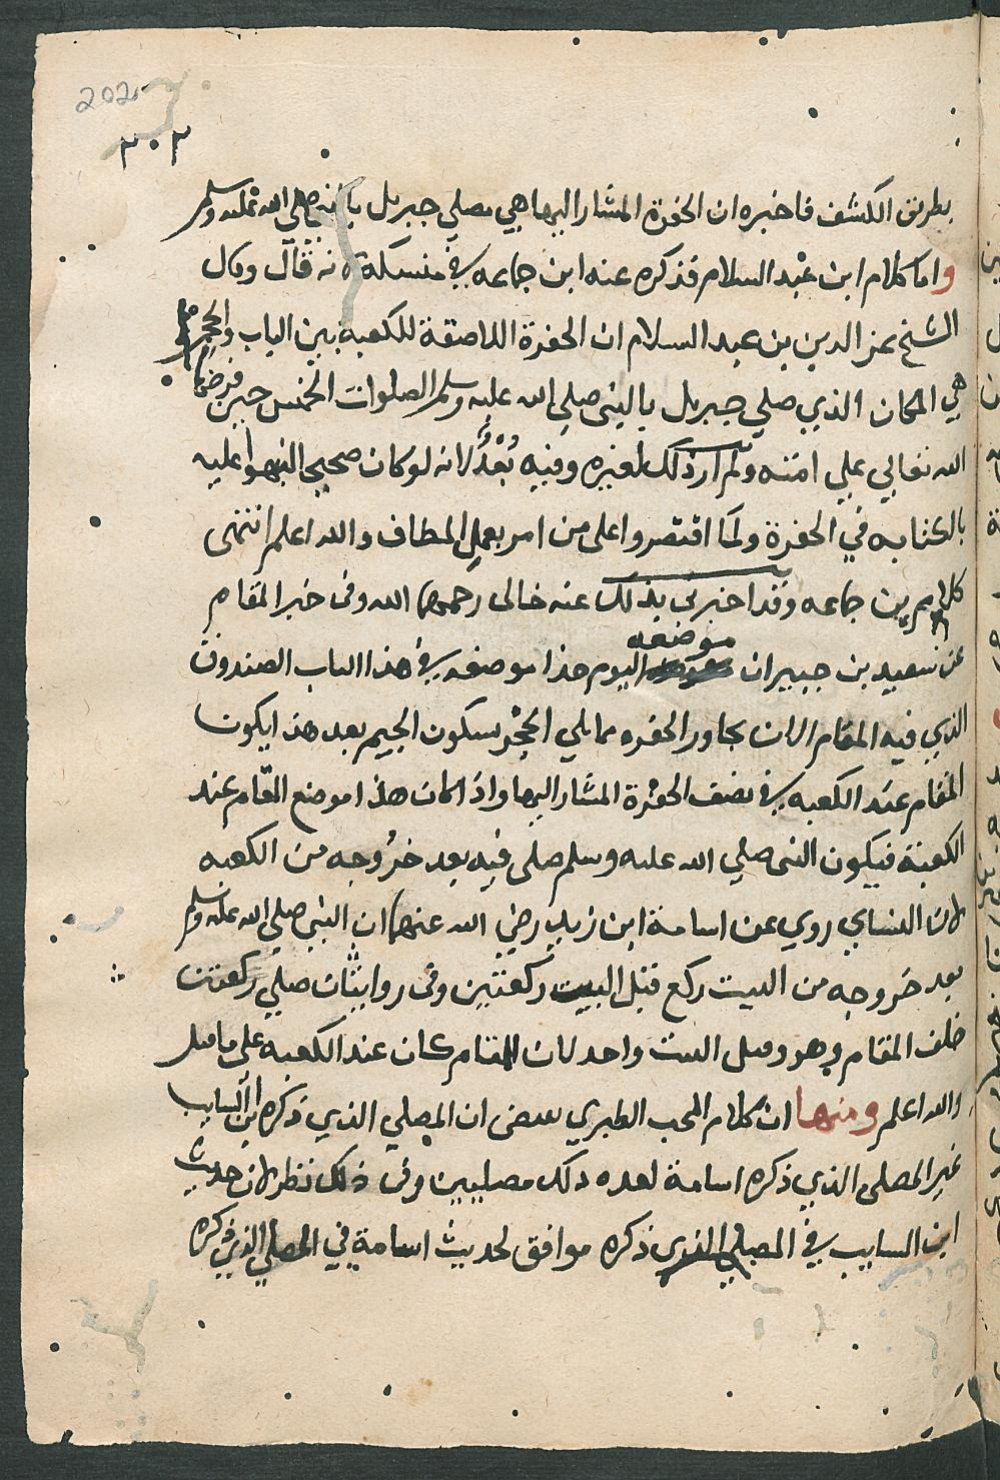 202
٢٠٢
بطريق الكشف فاخبره ان الحفرة المشار اليها هي مصلي جبريل بالنبي صلي الله عليه وسلم
واما كلام ابن عبد السلام فذكره عنه ابن جماعه في منسكه لانه قال وقال
الشيخ عز الدين بن عبد السلام ان الحفرة اللاصقة للكعبة بين الباب والحجر
هي المكان الذي صلي جبريل بالنبي صلي الله عليه وسلم الصلوات الخمس حين فرضها
الله تعالي علي امته ولم ار ذلك لغيره وفيه بُعْدٌ لانه لو كان صحيحا لنبهوا عليه
بالكتابه في الحفرة ولما اقتصروا على من امر بعمل المطاف والله اعلم انتهى
كلام بن جماعه وقد اخبرني بذلك عنه خالى رحمهما الله وفى خبر المقام
عن سعيد بن جبير ان موضعه اليوم هذا موضعه في هذا الباب الصندوق
الذي فيه المقام الان يجاور الحفره مما يلي الحِجْر بسكون الجيم بعد هذا يكون
المقام عند الكعبه في نصف الحفرة المشار اليها واذا كان هذا موضع المقام عند
الكعبة فيكون النبى صلي الله عليه وسلم صلى فيه بعد خروجه من الكعبه
لان النساي روي عن اسامة ابن زيد رضي الله عنهما ان النبي صلي الله عليه وسلم
بعد خروجه من البيت ركع قبل البيت ركعتين وفى روايتان صلي ركعتين
خلف المقام وهو وقبل البيت واحد لان المقام كان عند الكعبه على ما قيل
والله اعلم ومنها ان كلام المحب الطبري يقتضى ان المصلي الذي ذكره ابن السايب
غير المصلى الذي ذكره اسامة لعده ذلك مصليين وفى ذلك نظر لان حديث
ابن السايب في المصلي الذى ذكره موافق لحديث اسامة في المصلي الذي ذكره